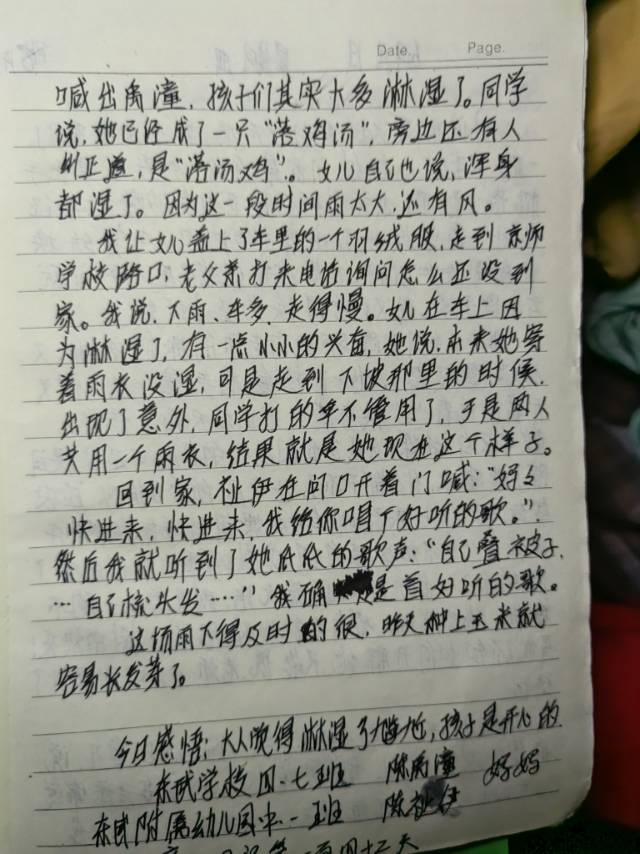 Date. Page.
喊出禹潼，孩子们其实大多淋湿了。同学
说，她已经成了一只“落鸡汤”，旁边还有人
纠正道，是“落汤鸡”。女儿自己也说，浑身
都湿了。因为这一段时间雨太大，还有风。
我让女儿盖上了车里的一个羽绒服，走到京师
学校路口，老父亲打来电话询问怎么还没到
家。我说，下雨、车多，走得慢。女儿在车上因
为淋湿了，有一点小小的兴奋，她说，本来她穿
着雨衣没湿，可是走到下坡那里的时候，
出现了意外，同学打的伞不管用了，于是两人
共用一个雨衣，结果就是她现在这个样子。
回到家，祉伊在门口开着门喊：“妈妈
快进来，快进来，我给你唱个好听的歌。”
然后我就听到了她低低的歌声：“自己叠被子，
…自己梳头发……”我确是首好听的歌。
这场雨下得及时的很，昨天种上玉米就
容易长发芽了。
今日感悟：大人觉得淋湿了尴尬，孩子是开心的
东武学校四·七班 陈禹潼 妈妈
东武附属幼儿园中一班 陈祉伊
一百四十二天